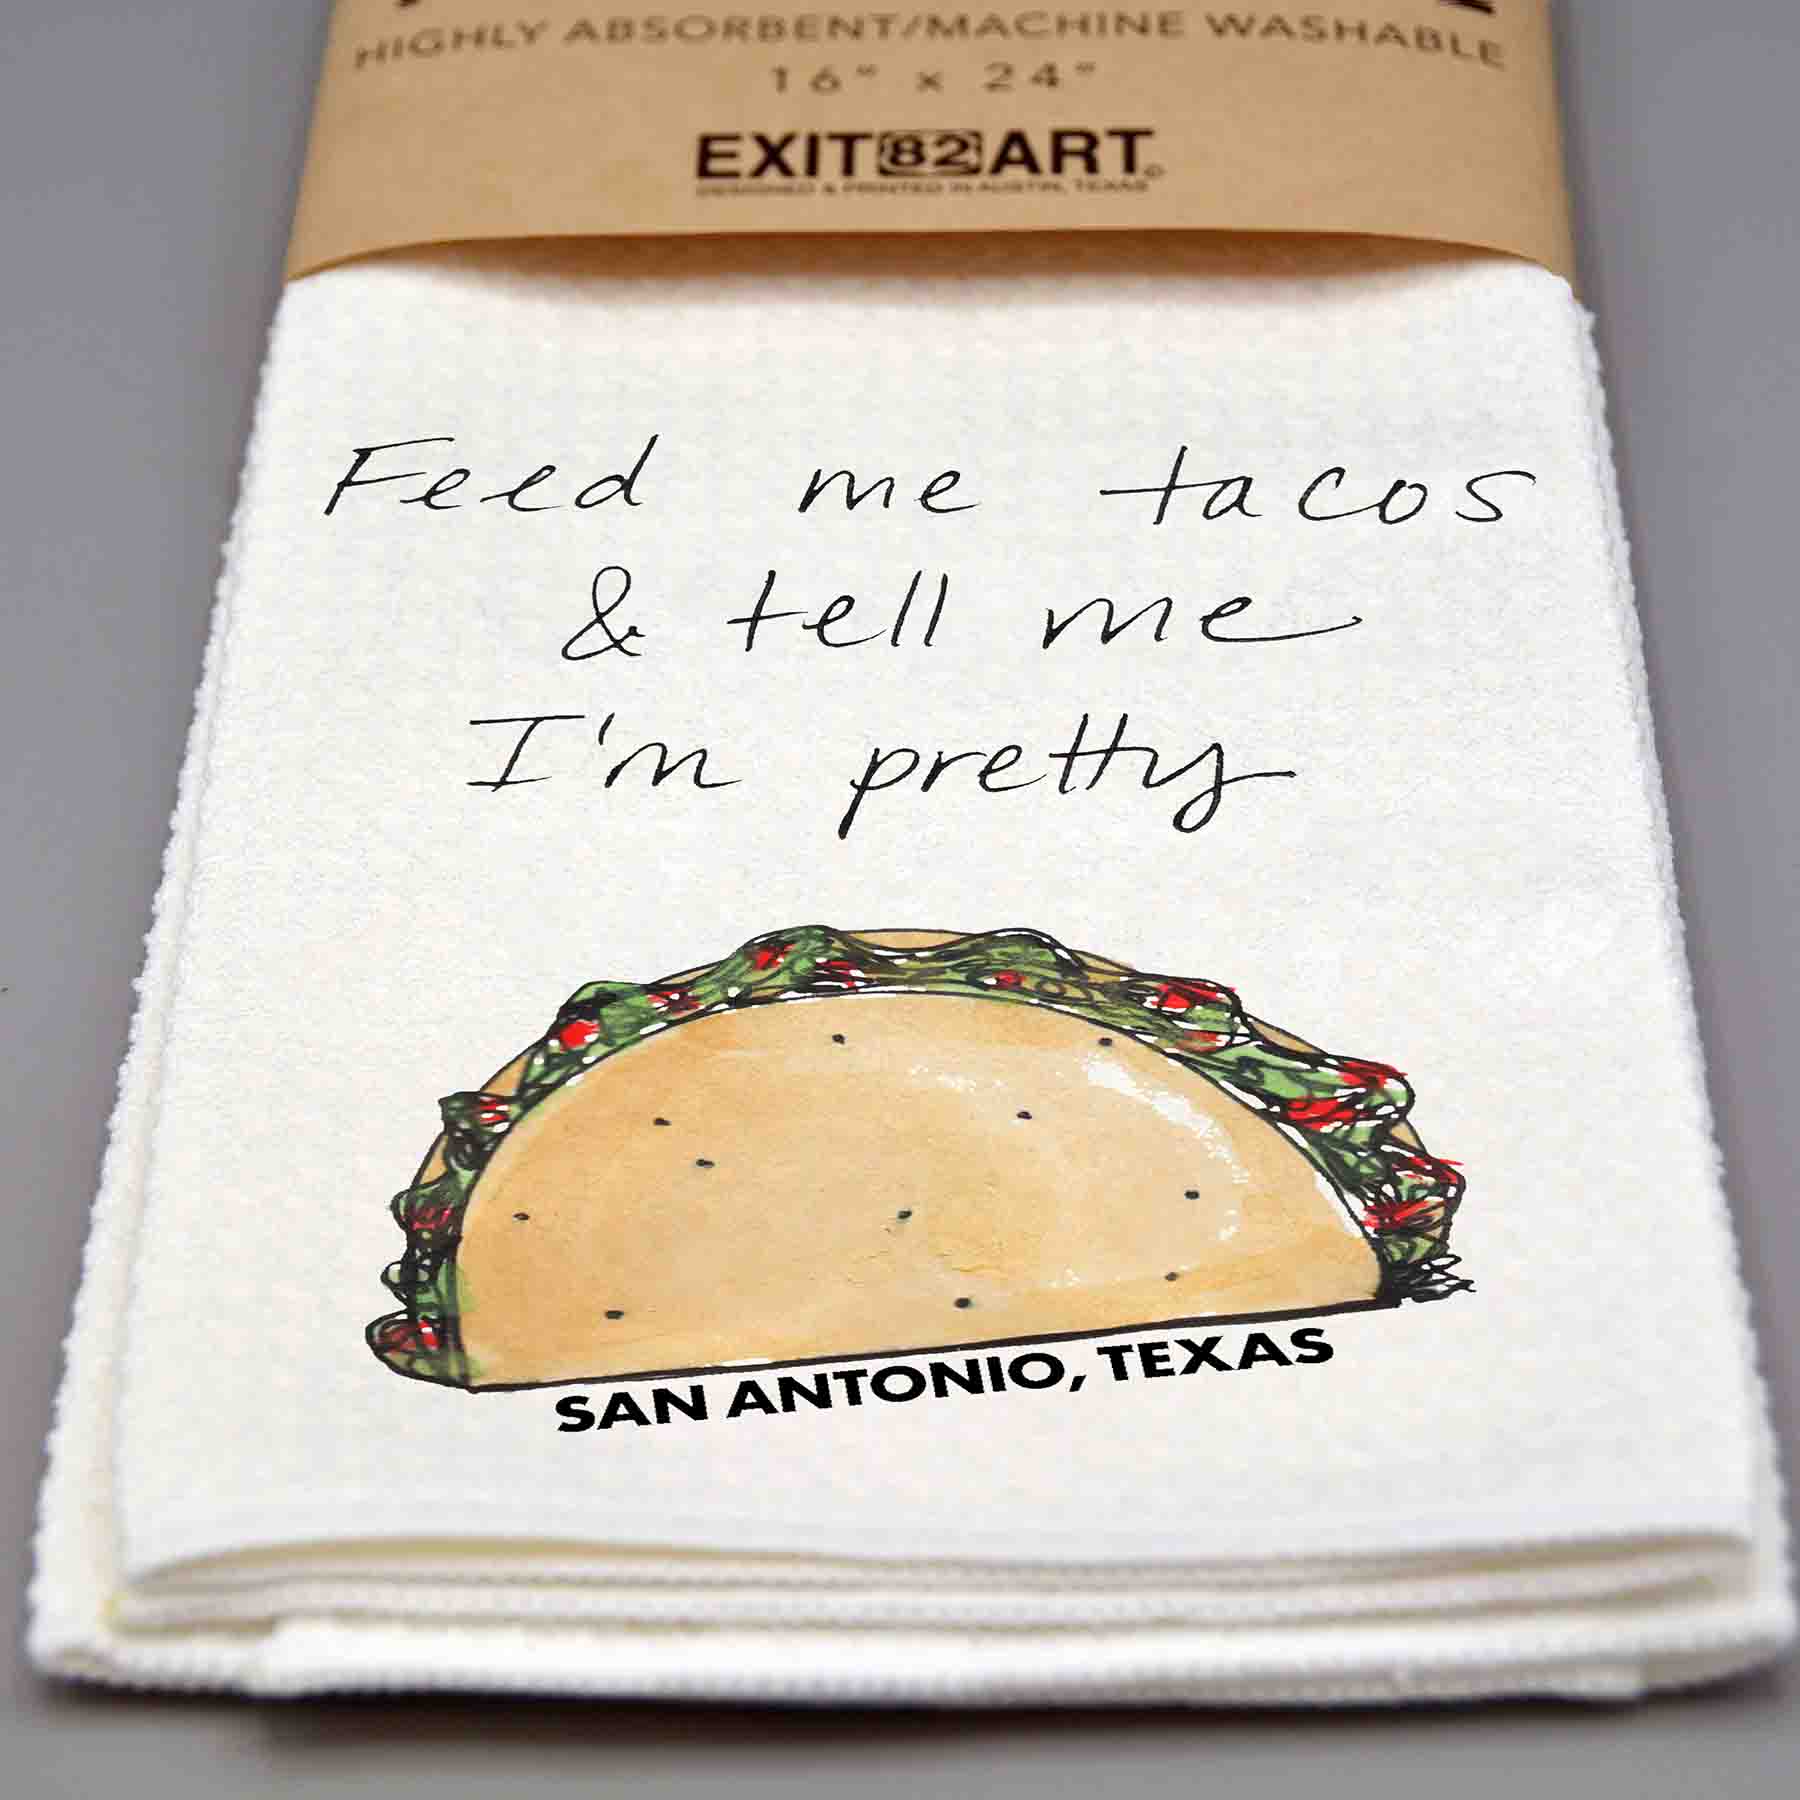 HIGHLY ABSORBENT/MACHINE WASHABLE
16" x 24"
EXIT 82 ART
DESIGNED & PRINTED IN AUSTIN, TEXAS
Feed me tacos
& tell me
I'm pretty
SAN ANTONIO, TEXAS